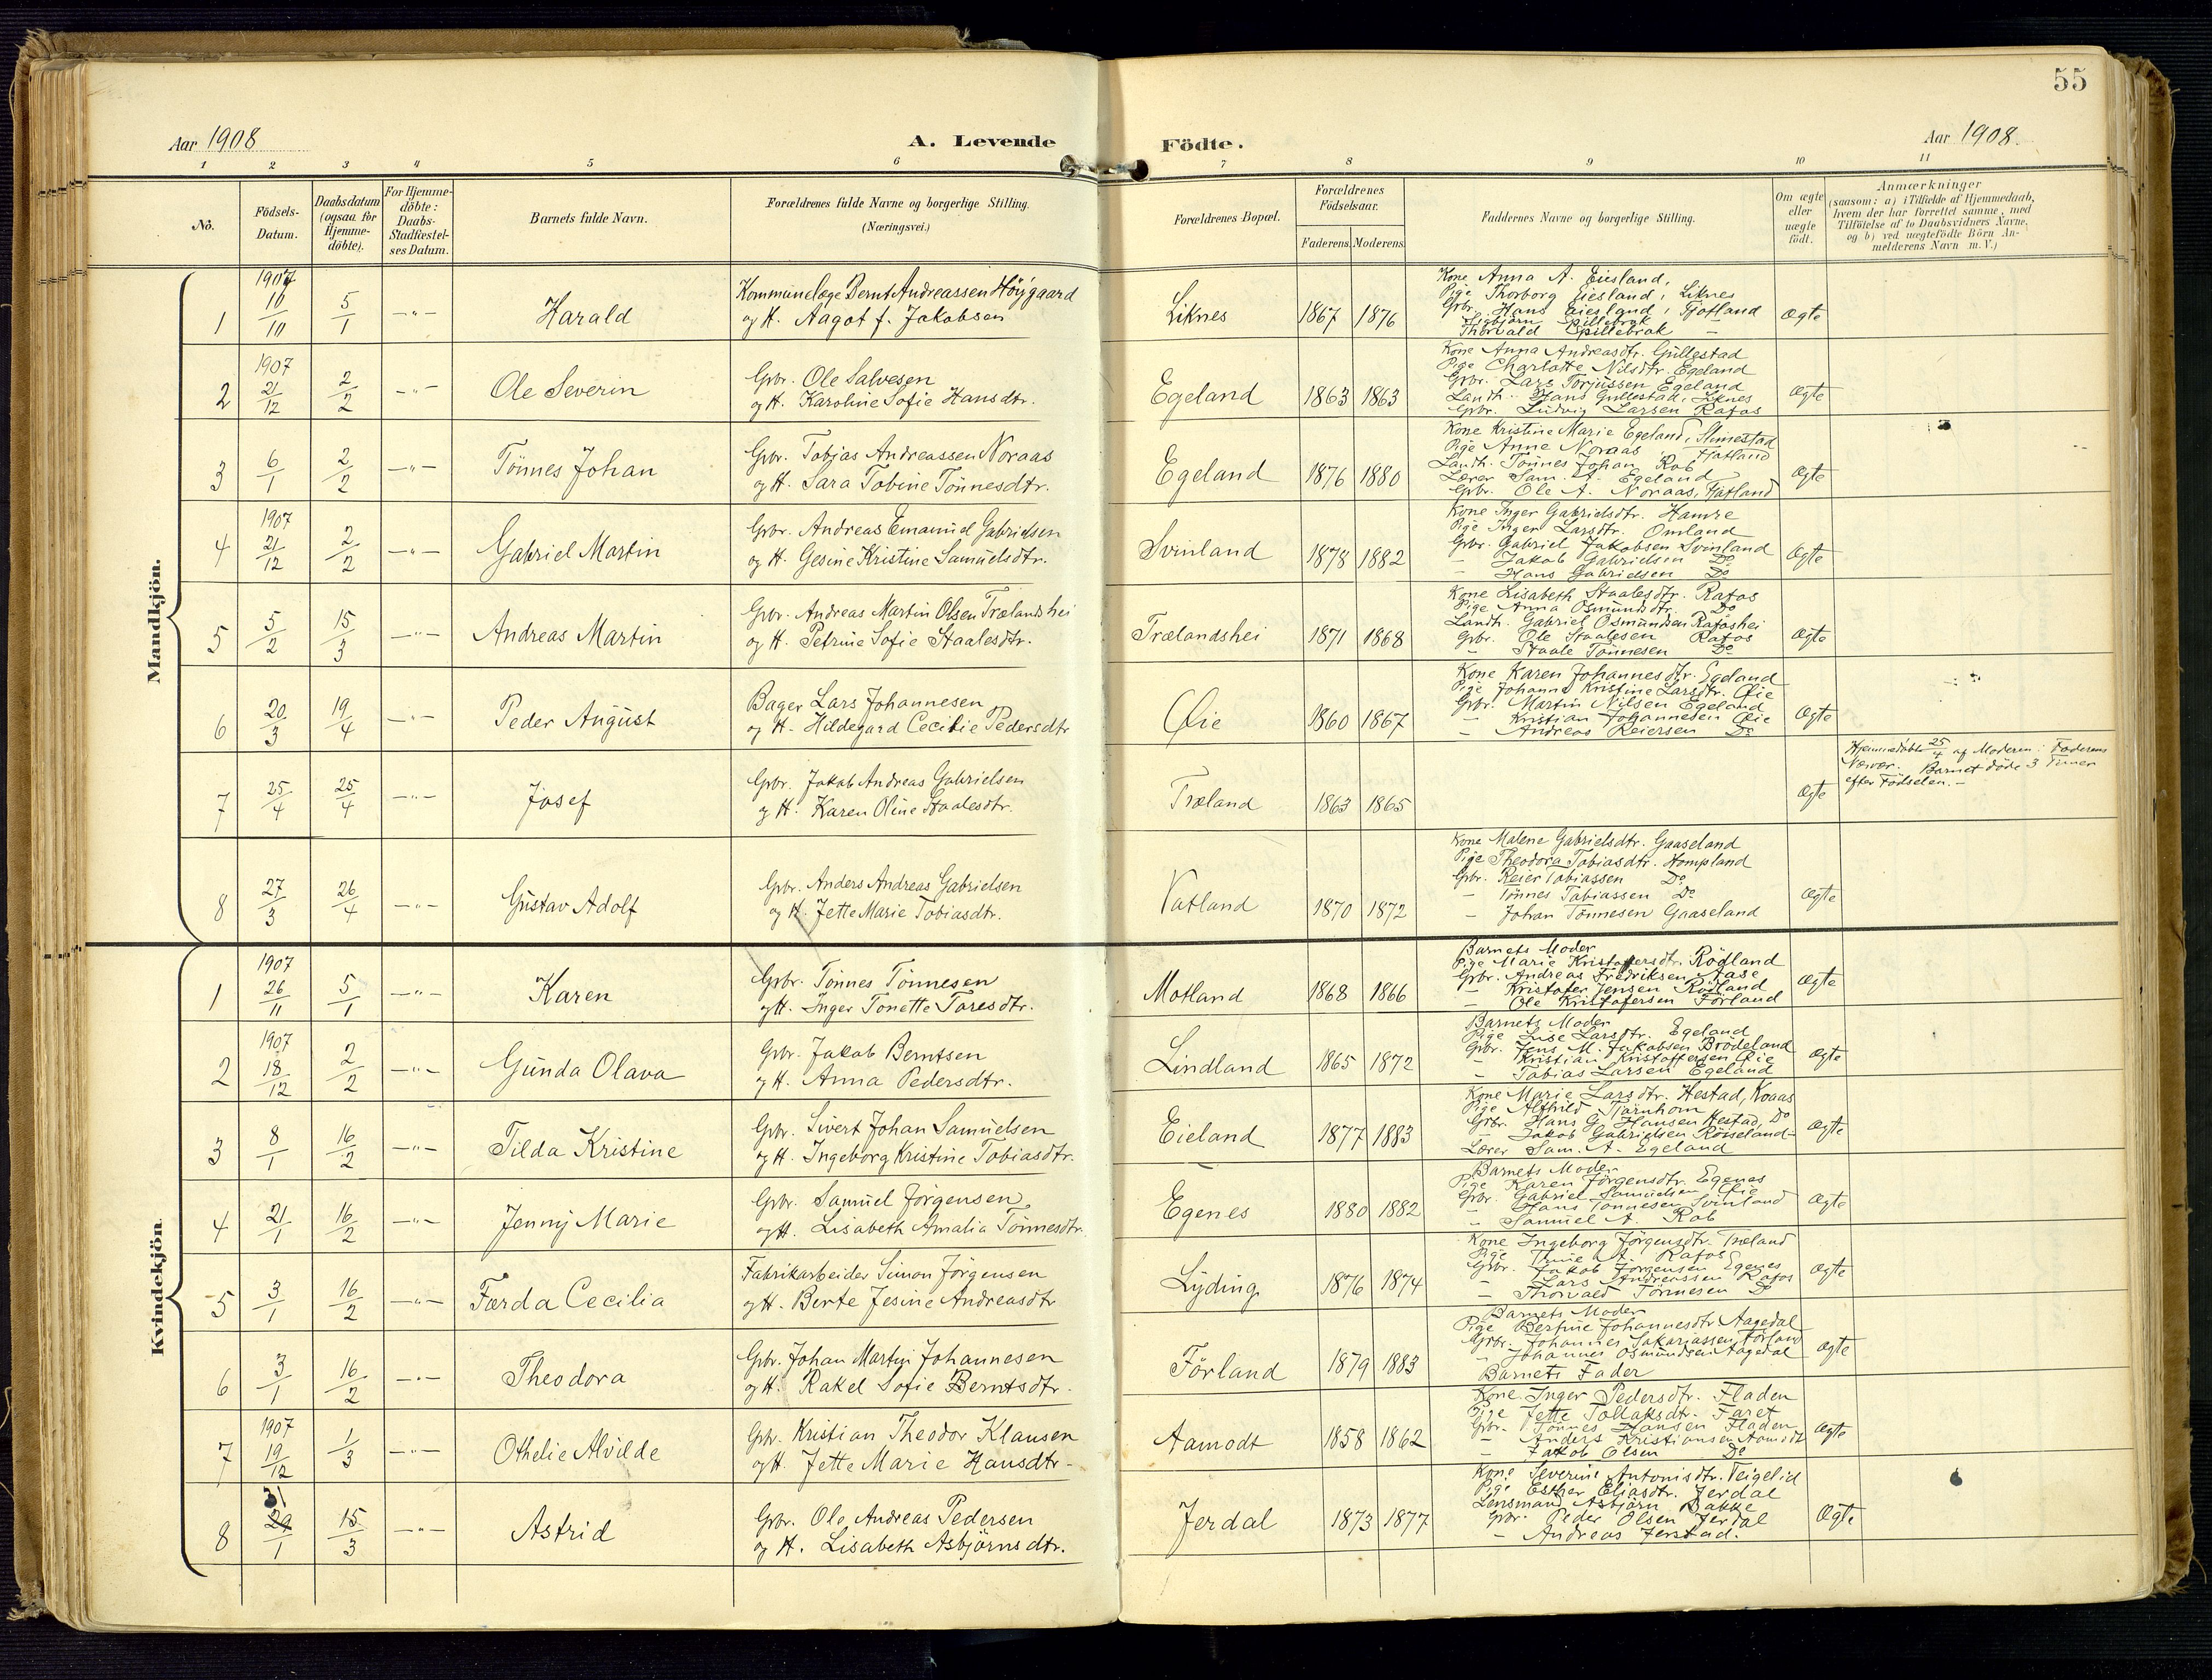 55
Aar 1908
A. Levende
Födte.
Aar 1908.
1 2 3 4 5 6 7 8 9 10 11
No.
Födsels-
Datum.
Daabsdatum
(ogsaa for
Hjemme-
döbte).
For Hjemme-
döbte:
Daabs-
Stadfæstel-
ses Datum.
Barnets fulde Navn.
Forældrenes fulde Navne og borgerlige Stilling.
(Næringsvei.)
Forældrenes Bopæl.
Forældrenes
Födselsaar.
Faderens Moderens
Faddernes Navne og borgerlige Stilling.
Om ægte
eller
uægte
födt.
Anmærkninger
(saasom: a) i Tilfælde af Hjemmedaab,
hvem der har forrettet samme, med
Tilföielse af to Daabsvidners Navne,
og b) ved uægtefödte Börn An-
melderens Navn m. V.)
Mandkjön.
1
1907
10/10
5/1
-„-
Harald
Kommunelæge Bernt Andreassen Höygaard
og H. Aagot f. Jakobsen
Liknes
1867 1876
Kone Anna A. Eiesland,
Pige Thorborg Eiesland, Liknes
Gbr. Hans Eiesland, Fjotland
Sigbjörn Spillebrok
Thorvald Spillebrok -
Ægte
2
1907
21/12
2/2
-„-
Ole Severin
Gbr. Ole Salvesen
og H. Karoline Sofie Hansdtr.
Egeland
1863 1863
Kone Anna Andreasdtr. Gullestad
Pige Charlotte Nilsdtr. Egeland
Gbr. Lars Torjussen Egeland
Landh. Hans Gullestad, Liknes
Gbr. Ludvig Larsen Rafos
Ægte
3
6/1
2/2
-„-
Tönnes Johan
Gbr. Tobias Andreassen Noraas
og H. Sara Tobine Tönnesdtr.
Egeland
1876 1880
Kone Kristine Marie Egeland, Slimestad
Pige Anne Noraas, Fjotland
Landh. Tönnes Johan Rob
Lærer Sam. A. Egeland
Gbr. Ole A. Noraas, Fjotland
Ægte
4
1907
21/12
2/2
-„-
Gabriel Martin
Gbr. Andreas Emanuel Gabrielsen
og H. Gesine Kristine Samuelsdtr.
Svinland
1878 1882
Kone Inger Gabrielsdtr. Hamre
Pige Inger Larsdtr. Omland
Gbr. Gabriel Jakobsen Svinland
- Jakob Gabrielsen Do
- Hans Gabrielsen Do
Ægte
5
5/2
15/3
-„-
Andreas Martin
Gbr. Andreas Martin Olsen Trælandshei
og H. Petrine Sofie Staalesdtr.
Trælandshei
1871 1868
Kone Lisabeth Staalesdtr. Rafos
Pige Anna Osmundsdtr. Do
Landh. Gabriel Osmundsen Rafoshei
Gbr. Ole Staalesen Rafos
- Staale Tönnesen Do
Ægte
6
20/3
19/4
-„-
Peder August
Bager Lars Johannesen
og H. Hildegard Cecilie Pedersdtr
Øie
1860 1867
Kone Karen Johannesdtr. Egeland
Pige Johanne Kristine Larsdtr. Øie
Gbr. Martin Nilsen Egeland
- Kristian Johannesen Øie
- Andreas Reiersen Do
Ægte
7
25/4
25/4
-„-
Josef
Gbr. Jakob Andreas Gabrielsen
og H. Karen Oline Staalesdtr.
Træland
1863 1865
Ægte
Hjemmedöbt 25/4 af Moderen i Faderens
Nærvær. Barnet döde 3 Timer
efter Födselen.-
8
27/3
26/4
-„-
Gustav Adolf
Gbr. Anders Andreas Gabrielsen
og H. Jette Marie Tobiasdtr.
Vatland
1870 1872
Kone Malene Gabrielsdtr. Gaaseland
Pige Theodora Tobiasdtr. Hompland
Gbr. Reier Tobiassen Do
- Tönnes Tobiassen Do
- Johan Tönnesen Gaaseland
Ægte
Kvindekjön.
1
1907
26/11
5/1
-„-
Karen
Gbr. Tönnes Tönnesen
og H. Inger Tonette Taresdtr.
Motland
1868 1866
Barnets Moder
Pige Marie Kristofersdtr. Rödland
Gbr. Andreas Fredriksen Aase
- Kristofer Jensen Rödland
- Ole Kristofersen Förland
Ægte
2
1907
18/12
2/2
-„-
Gunda Olava
Gbr. Jakob Berntsen
og H. Anna Pedersdtr.
Lindland
1865 1872
Barnets Moder
Pige Lise Larsdtr. Egeland
Gbr. Jens M. Jakobsen Brödeland
- Kristian Kristoffersen Øie
- Tobias Larsen Egeland
Ægte
3
8/1
16/2
-„-
Tilda Kristine
Gbr. Sivert Johan Samuelsen
og H. Ingeborg Kristine Tobiasdtr.
Eieland
1877 1883
Kone Marie Larsdtr. Hestad, Kvaas
Pige Alfhild Tjörnhom
Gbr. Hans G. Hansen Hestad, Do
- Jakob Gabrielsen Röiseland
Lærer Sam. A. Egeland
Ægte
4
21/1
16/2
-„-
Jenny Marie
Gbr. Samuel Jörgensen
og H. Lisabeth Amalia Tönnesdtr.
Egenes
1880 1882
Barnets Moder
Pige Karen Jörgensdtr. Egenes
Gbr. Gabriel Samuelsen Øie
- Hans Tönnesen Svinland
- Samuel A. Rob
Ægte
5
3/1
16/2
-„-
Færda Cecilia
Fabrikarbeider Simon Jörgensen
og H. Berte Jesine Andreasdtr
Lyding
1876 1874
Kone Ingeborg Jörgensdtr. Træland
Pige Thine A. Rafos
Gbr. Jakob Jörgensen Egenes
- Lars Andreassen Rafos
- Thorvald Tönnesen Do
Ægte
6
3/1
16/2
-„-
Theodora
Gbr. Johan Martin Johannesen
og H. Rakel Sofie Berntsdtr.
Förland
1879 1883
Barnets Moder
Pige Bertine Johannesdtr Aagedal
Gbr. Johannes Sakariassen Förland
" Johannes Osmundsen Aagedal
Barnets Fader
Ægte
7
1907
19/12
1/3
-„-
Othelie Alvilde
Gbr. Kristian Theodor Klausen
og H. Jette Marie Hansdtr-
Aamodt
1858 1862
Kone Inger Pedersdtr. Fladen
Pige Jette Tollaksdtr. Faret
Gbr. Tönnes Hansen Fladen
- Anders Kristiansen Aamodt
- Jakob Olsen Do
Ægte
8
31
29/1
15/3
-„-
Astrid
Gbr. Ole Andreas Pedersen
og H. Lisabeth Asbjörnsdtr.
Jerdal
1873 1877
Kone Severine Antonisdtr. Veigelid
Pige Esther Eliasdtr. Jerdal
Lensmand Asbjörn Bakke
Gbr. Peder Olsen Jerdal
- Andreas Jerstad.
Ægte